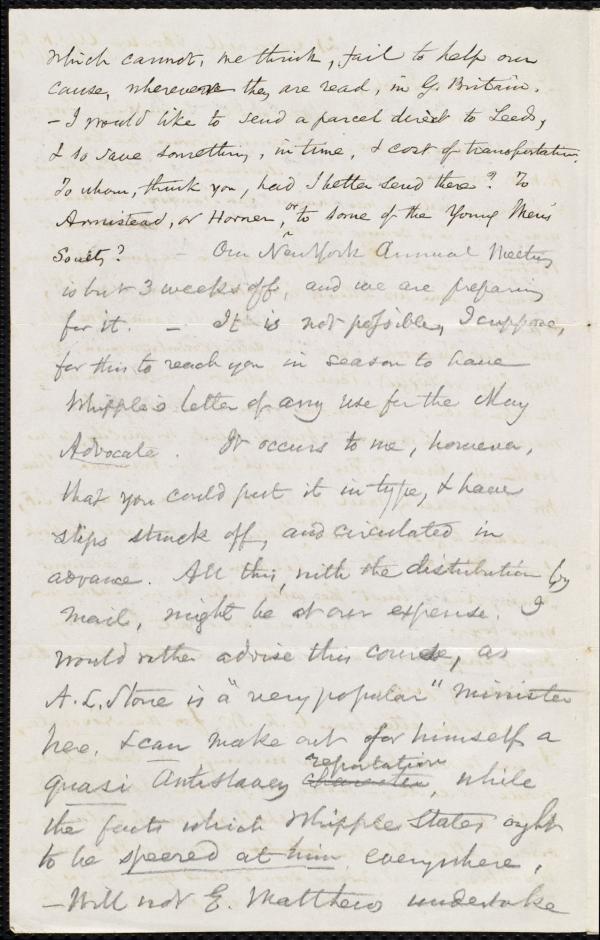 which cannot, we think, fail to help our
cause, wherever they are read, in G. Britain.
– I would like to send a parcel direct to Leeds,
& so save something, in time, & cost of transportation.
To whom, think you, had I better send there? To
Armistead, or Horner, or to some of the Young Men's
Society? – Our New York Annual Meeting
is but 3 weeks off, and we are preparing
for it. – It is not possible, I suppose,
for this to reach you in season to have
Whipple's letter of any use for the May
Advocate. It occurs to me, however,
that you could put it in type, & have
slips struck off, and circulated in
advance. All this, with the distribution by
mail, might be at our expense. I
would rather advise this course, as
A. L. Stone is a "very popular" minister
here, & can make out for himself a
quasi Antislavery character reputation, while
the facts which Whipple states ought
to be speered at him everywhere.
– Will not E. Matthews undertake